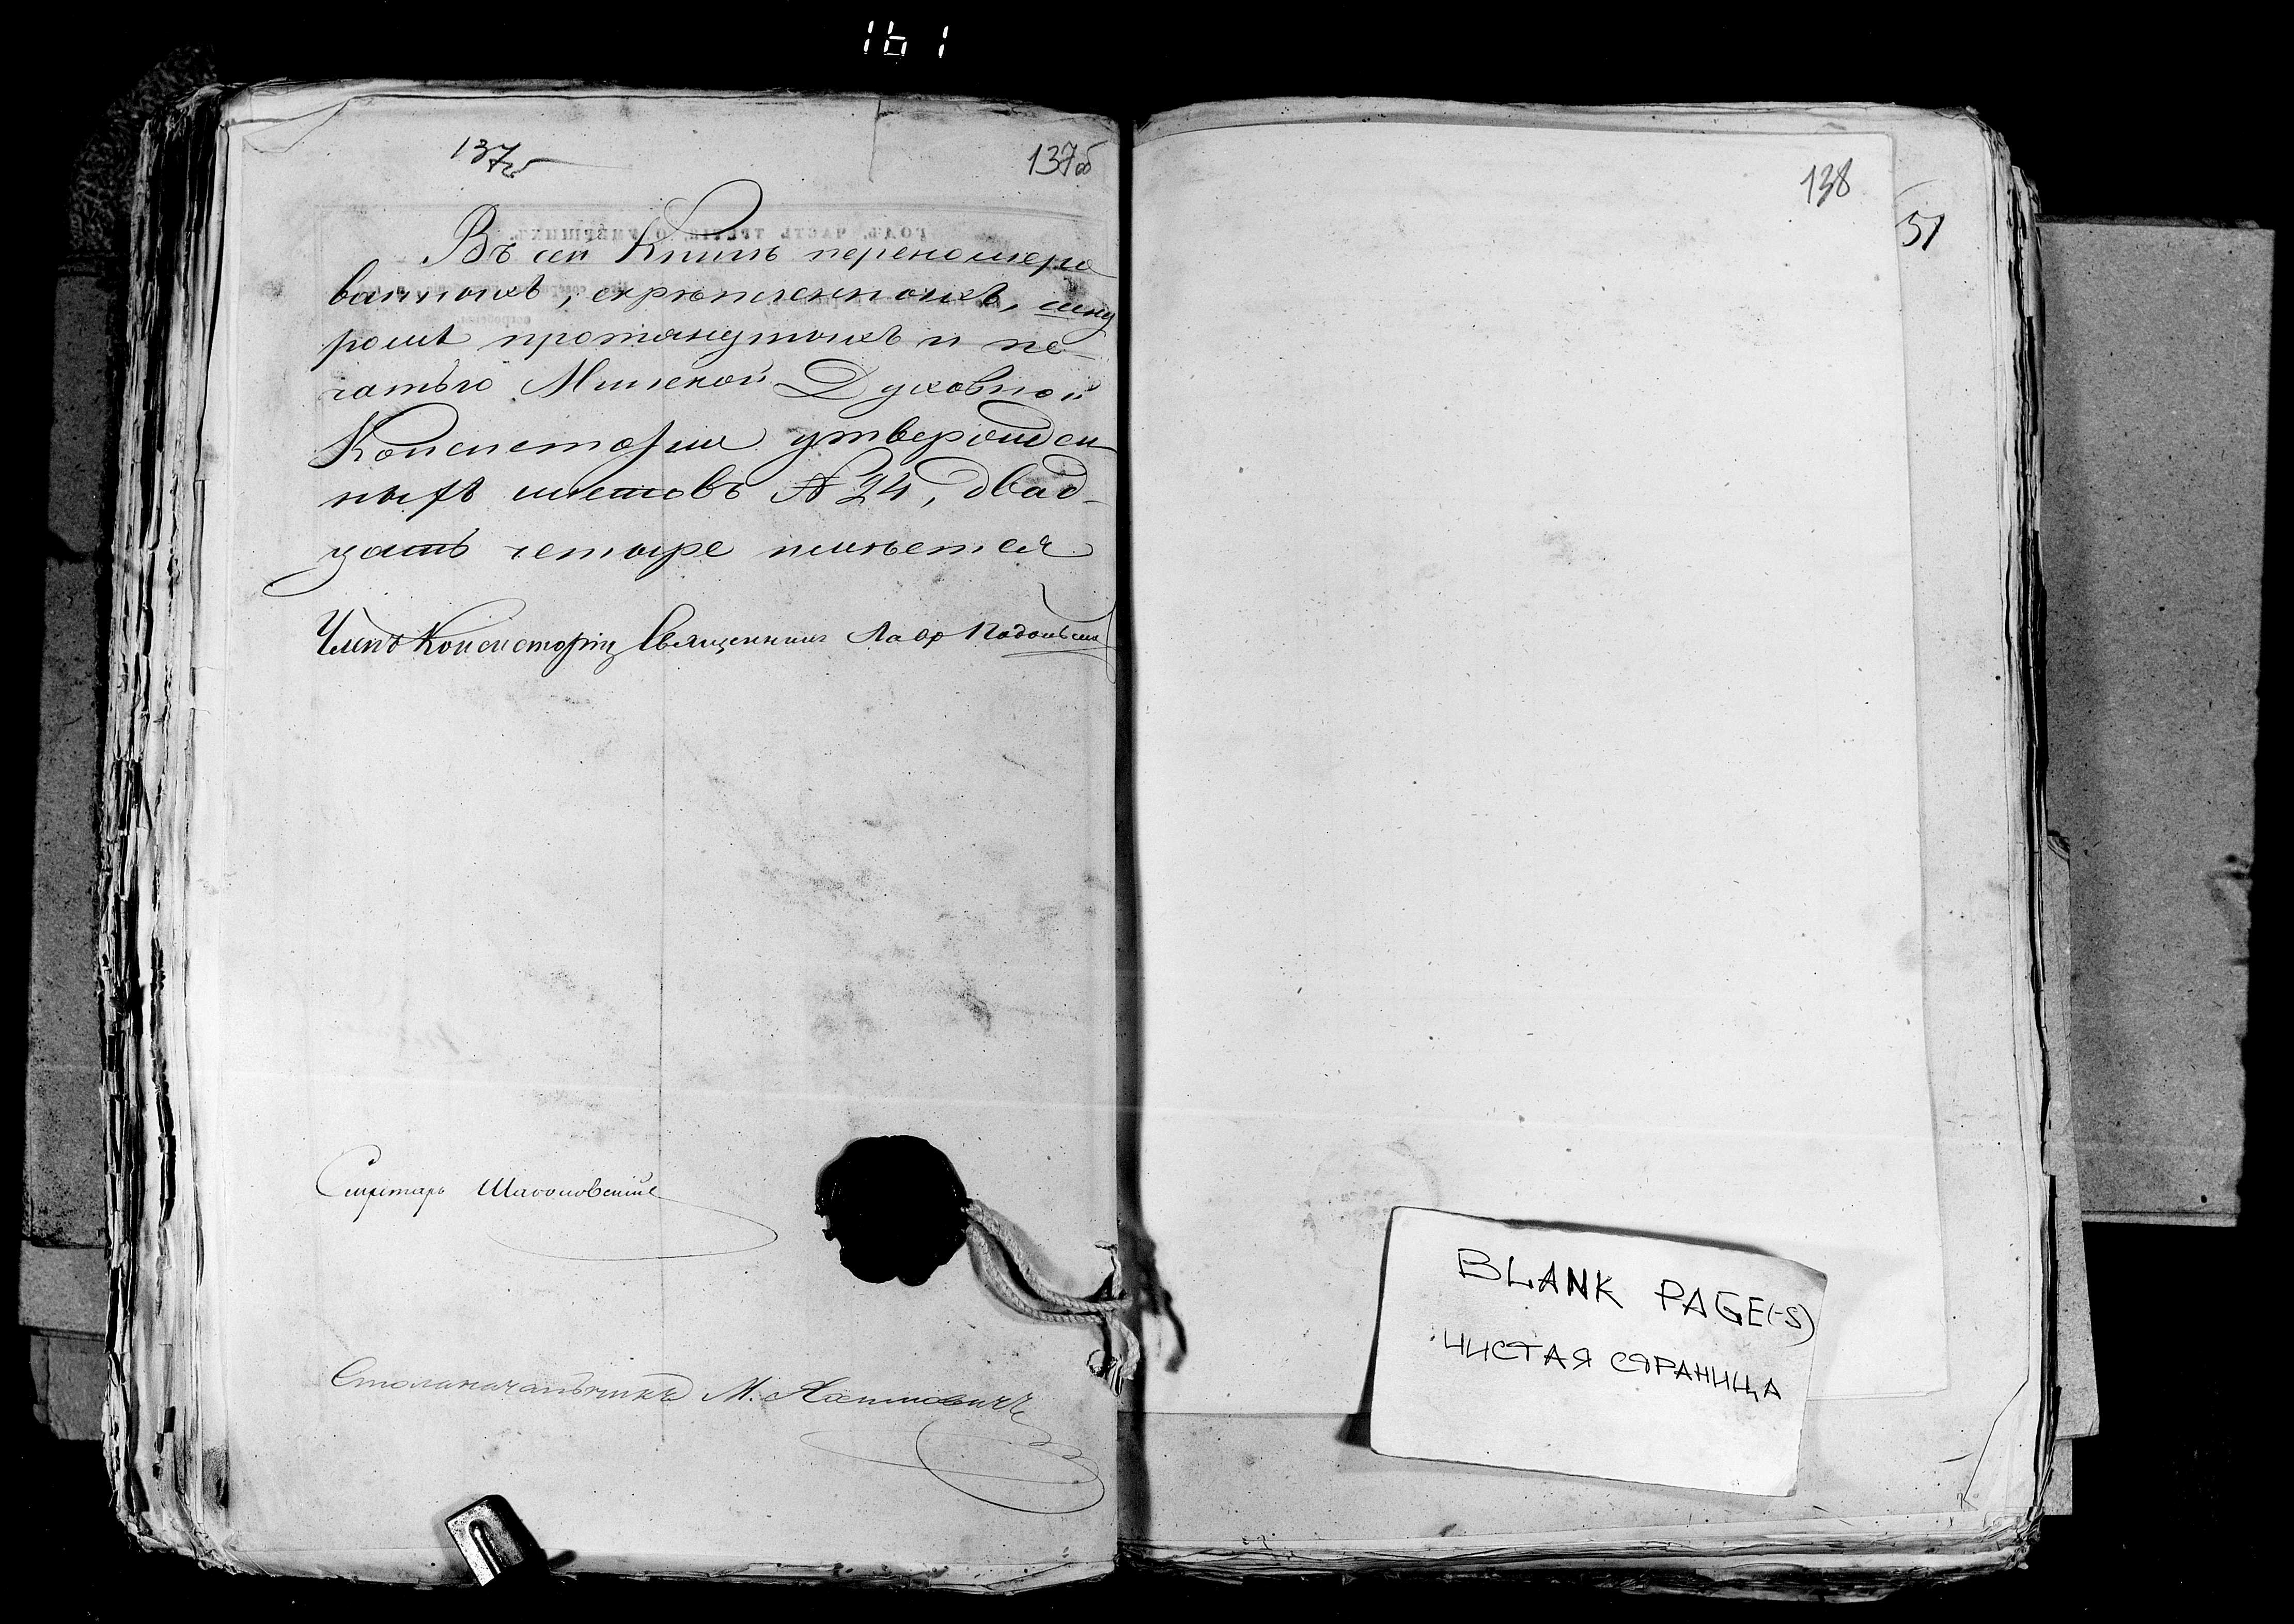 161
137об
137об
Въ сей Книгѣ перенумеро
ванныхъ, скрѣпленныхъ, шну
ромъ протянутыхъ и пе-
чатью Минской Духовной
Консисторіи утвержден
ныхъ листовъ № 24, двад-
цать четыре имѣется
Членъ Консисторіи Священникъ
Секретарь
Столоначальникъ М.
138
51
BLANK PAGE(-S)
ЧИСТАЯ СТРАНИЦА